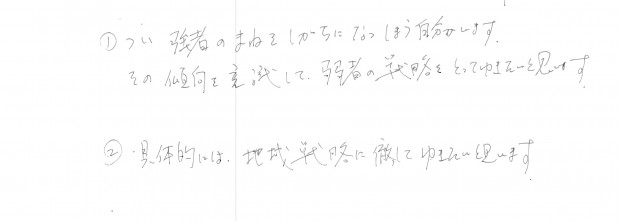 ① つい 強者のまねをしがちになってしまう自分がいます。
その傾向を意識して、弱者の戦略をとってゆきたいと思います
② 具体的には、地域戦略に徹してゆきたい思います